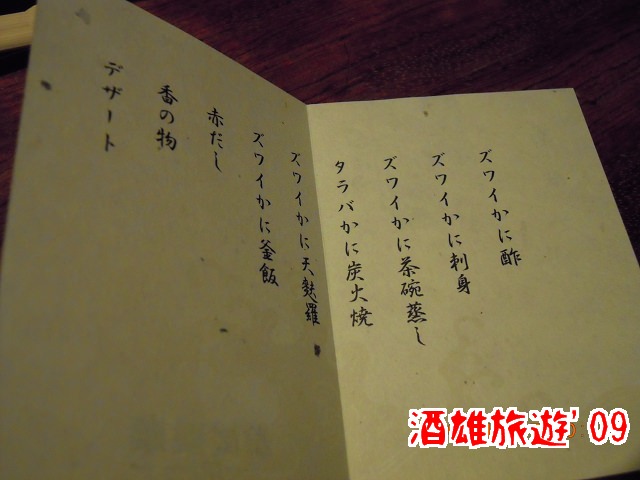 ズワイかに酢
ズワイかに刺身
ズワイかに茶碗蒸し
タラバかに炭火焼
ズワイかに天麩羅
ズワイかに釜飯
赤だし
香の物
デザート
酒雄旅遊'09